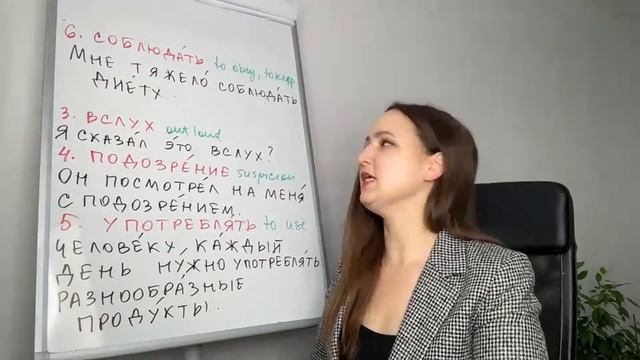 6. СОБЛЮДА́ТЬ to obey, to keep
МНЕ ТЯЖЕЛО́ СОБЛЮДА́ТЬ
ДИЕ́ТУ.
3. ВСЛУХ out loud
Я СКАЗА́Л Э́ТО ВСЛУХ?
4. ПОДОЗРЕ́НИЕ suspicion
ОН ПОСМОТРЕ́Л НА МЕНЯ́
С ПОДОЗРЕ́НИЕМ.
5. УПОТРЕБЛЯ́ТЬ to use
ЧЕЛОВЕ́КУ, КА́ЖДЫЙ
ДЕНЬ НУ́ЖНО УПОТРЕБЛЯ́ТЬ
РАЗНООБРАЗНЫЕ
ПРОДУ́КТЫ.